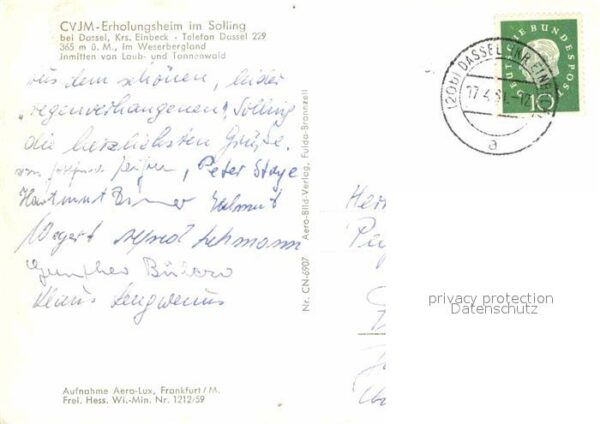 CVJM-Erholungsheim im Solling
bei Dassel, Krs. Einbeck · Telefon Dassel 229
365 m ü. M., im Weserbergland
Inmitten von Laub- und Tannenwald
aus dem schönen, leider
"regenverhangenen" Solling
die herzlichsten Grüße.
Peter Staye
Hartmut Helmut
Alfred Lehmann
Günther Büloro
Klaus Lengwenus
Aufnahme Aero-Lux, Frankfurt/M.
Frei. Hess. Wi.-Min. Nr. 1212/59
Nr. CN-6907 Aero-Bild-Verlag, Fulda-Bronnzell
DEUTSCHE BUNDESPOST
10
(20b) DASSEL
17.4.
a
privacy protection
Datenschutz